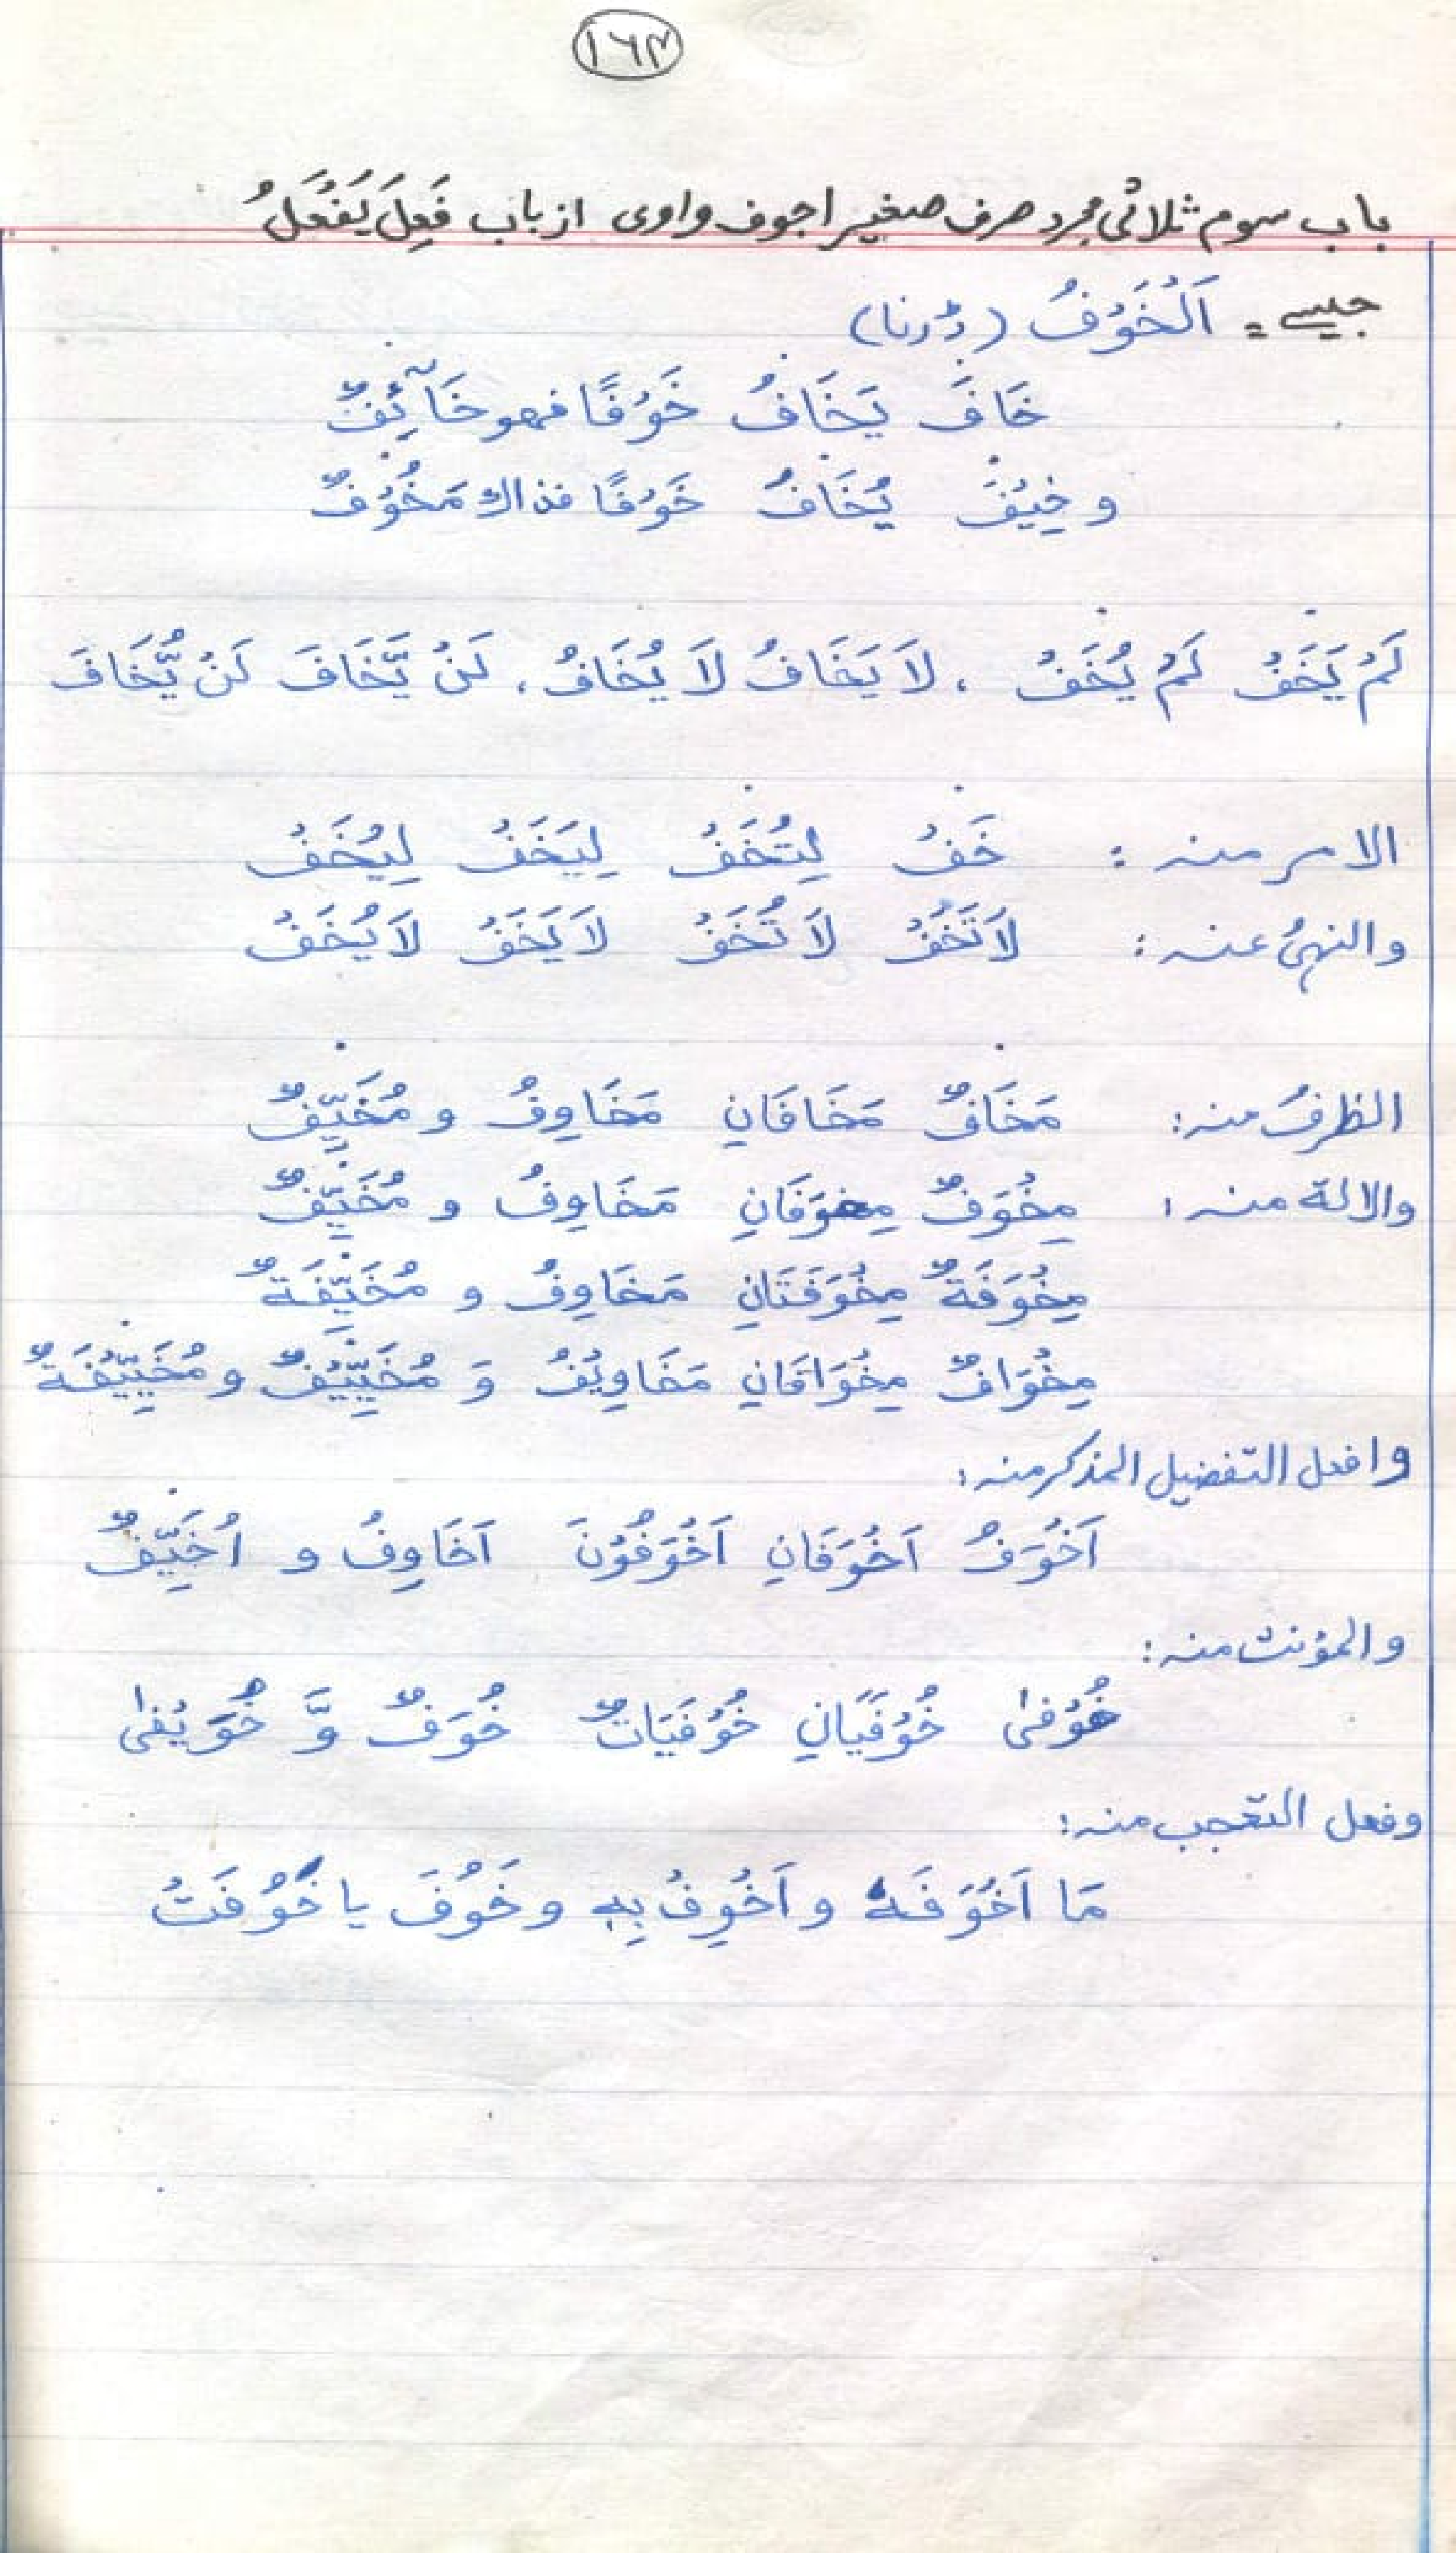 ١٦٣
باب سوم ثلاثی مجرد صرف صغیر اجوف واوی از باب فَعِلَ یَفْعَلُ
جیسے = اَلْخَوْفُ (ڈرنا)
خَافَ یَخَافُ خَوْفًا فهو خَآئِفٌ
و خِیْفَ یُخَافُ خَوْفًا فذاك مَخُوْفٌ
لَمْ یَخَفْ لَمْ یُخَفْ ، لَا یَخَافُ لَا یُخَافُ ، لَنْ یَّخَافَ لَنْ یُّخَافَ
الامر منه : خَفْ لِتُخَفْ لِیَخَفْ لِیُخَفْ
والنهیُ عنه : لَا تَخَفْ لَا تُخَفْ لَا یَخَفْ لَا یُخَفْ
الظرفُ منه : مَخَافٌ مَخَافَانِ مَخَاوِفُ و مُخَیِّفٌ
والالة منه : مِخْوَفٌ مِخْوَفَانِ مَخَاوِفُ و مُخَیِّفٌ
مِخْوَفَةٌ مِخْوَفَتَانِ مَخَاوِفُ و مُخَیِّفَةٌ
مِخْوَافٌ مِخْوَافَانِ مَخَاوِیْفُ وَ مُخَیِّیْفٌ و مُخَیِّیْفَةٌ
وافعل التفضیل المذکر منه :
اَخْوَفُ اَخْوَفَانِ اَخْوَفُوْنَ اَخَاوِفُ و اُخَیِّفٌ
والمؤنث منه :
خُوْفٰی خُوْفَیَانِ خُوْفَیَاتٌ خُوَفٌ وَّ خُوَیْفٰی
وفعل التعجب منه :
مَا اَخْوَفَهٗ و اَخْوِفْ بِهٖ و خَوُفَ یا خَوُفَتْ